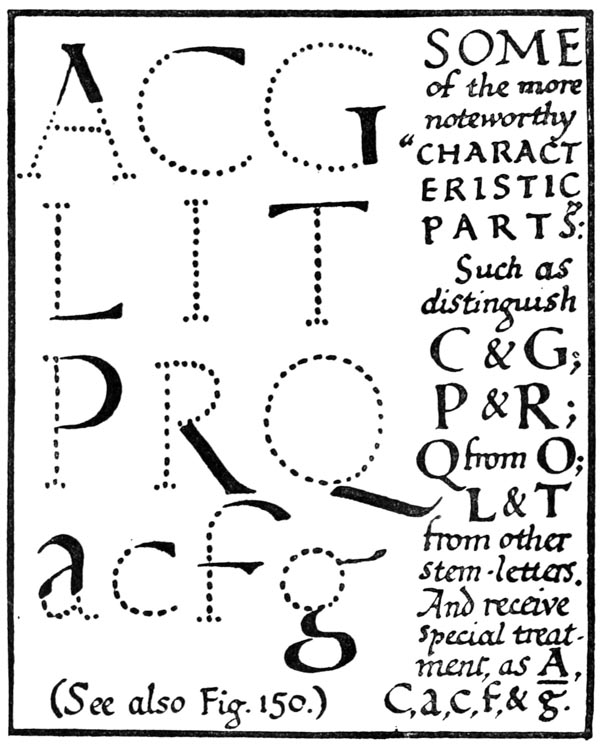 A C G
L I T
P R Q
a c f g
(See also Fig. 150.)
SOME
of the more
noteworthy
"CHARACT
ERISTIC
PARTS":
Such as
distinguish
C & G;
P & R;
Q from O;
L & T
from other
stem-letters.
And receive
special treat-
ment, as A,
C, a, c, f, & g.